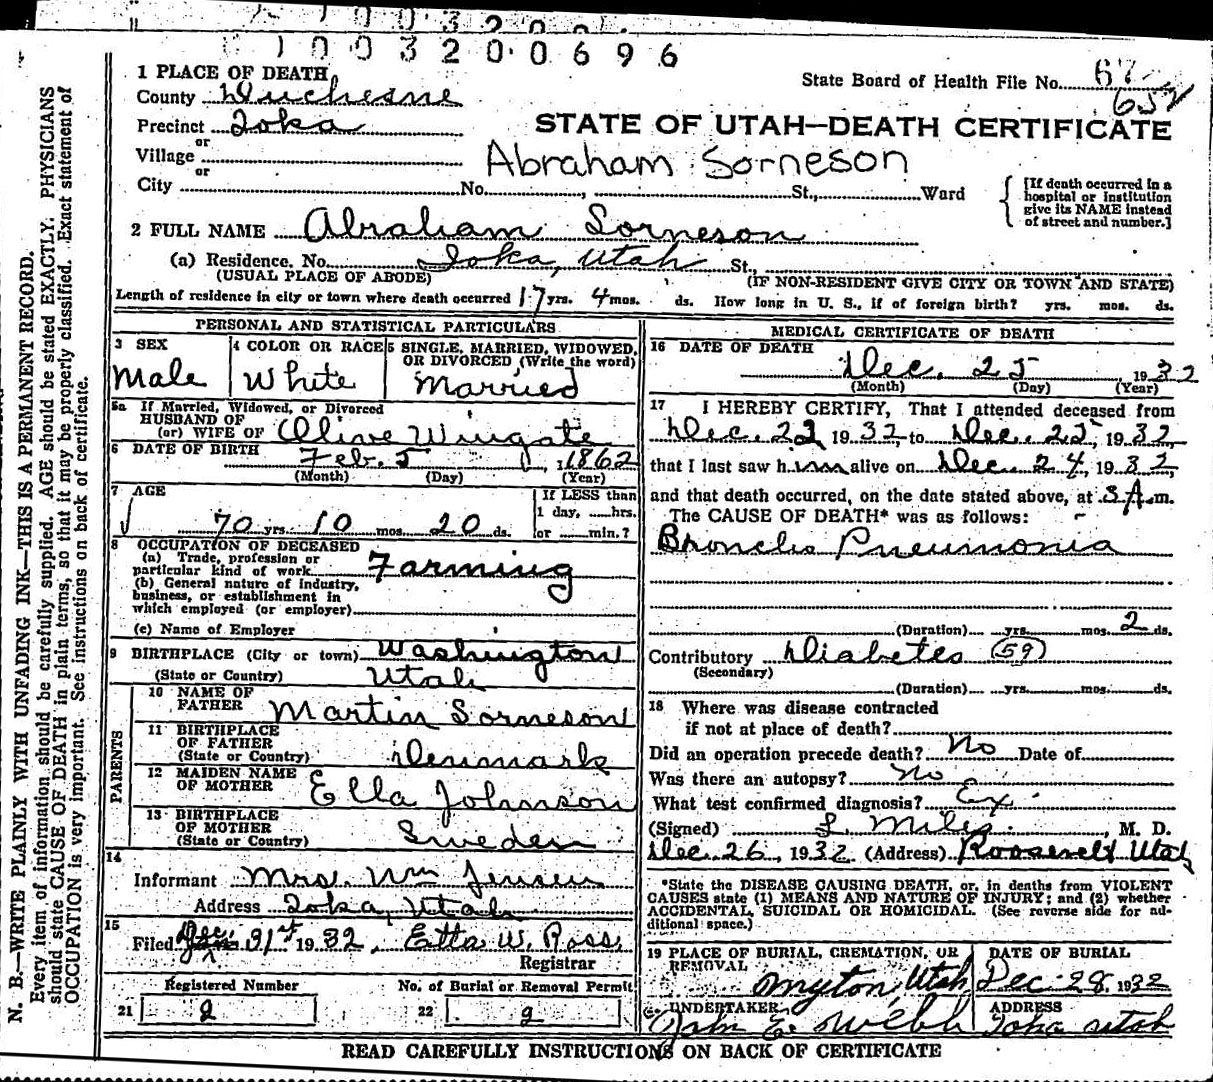 1003200696
1 PLACE OF DEATH
State Board of Health File No. 67
652
County Duchesne
Precinct Ioka
STATE OF UTAH—DEATH CERTIFICATE
or
Village
Abraham Sorneson
or
City No. , St., Ward
[If death occurred in a hospital or institution give its NAME instead of street and number.]
2 FULL NAME Abraham Sorneson
(a) Residence. No. Ioka, Utah St.,
(USUAL PLACE OF ABODE) (IF NON-RESIDENT GIVE CITY OR TOWN AND STATE)
Length of residence in city or town where death occurred 17 yrs. 4 mos. ds. How long in U. S., if of foreign birth? yrs. mos. ds.
PERSONAL AND STATISTICAL PARTICULARS
3 SEX
Male
4 COLOR OR RACE
White
5 SINGLE, MARRIED, WIDOWED,
OR DIVORCED (Write the word)
Married
5a If Married, Widowed, or Divorced
HUSBAND OF
(or) WIFE OF Olive Wingate
6 DATE OF BIRTH Feb. 5, 1862
(Month) (Day) (Year)
7 AGE
70 yrs. 10 mos. 20 ds.
If LESS than
1 day, ......hrs.
or ......min.?
8 OCCUPATION OF DECEASED
(a) Trade, profession or
particular kind of work Farming
(b) General nature of industry,
business, or establishment in
which employed (or employer)
(c) Name of Employer
9 BIRTHPLACE (City or town) Washington
(State or Country) Utah
PARENTS
10 NAME OF
FATHER Martin Sorneson
11 BIRTHPLACE
OF FATHER
(State or Country) Denmark
12 MAIDEN NAME
OF MOTHER Ella Johnson
13 BIRTHPLACE
OF MOTHER
(State or Country) Sweden
14
Informant Mrs. Wm Jensen
Address Ioka, Utah
15
Filed Dec. 31st 1932, Etta W. Ross
Registrar
Registered Number
21
No. of Burial or Removal Permit
22
MEDICAL CERTIFICATE OF DEATH
16 DATE OF DEATH
Dec. 25 1932
(Month) (Day) (Year)
17 I HEREBY CERTIFY, That I attended deceased from
Dec. 22 1932, to Dec. 25, 1932,
that I last saw him alive on Dec. 24, 1932,
and that death occurred, on the date stated above, at 3 A.m.
The CAUSE OF DEATH* was as follows:
Broncho Pneumonia
(Duration) yrs. mos. 2 ds.
Contributory Diabetes (59)
(Secondary)
(Duration) yrs. mos. ds.
18 Where was disease contracted
if not at place of death?
Did an operation precede death? No Date of
Was there an autopsy? No
What test confirmed diagnosis? Ex
(Signed) L. Miles, M. D.
Dec. 26, 1932 (Address) Roosevelt Utah
*State the DISEASE CAUSING DEATH, or, in deaths from VIOLENT
CAUSES state (1) MEANS AND NATURE OF INJURY; and (2) whether
ACCIDENTAL, SUICIDAL OR HOMICIDAL. (See reverse side for ad-
ditional space.)
19 PLACE OF BURIAL, CREMATION, OR
REMOVAL
Myton, Utah
DATE OF BURIAL
Dec 28. 1932
UNDERTAKER
John E. Webb
ADDRESS
Ioka Utah
READ CAREFULLY INSTRUCTIONS ON BACK OF CERTIFICATE
N. B.—WRITE PLAINLY WITH UNFADING INK—THIS IS A PERMANENT RECORD.
Every item of information should be carefully supplied. AGE should be stated EXACTLY. PHYSICIANS
should state CAUSE OF DEATH in plain terms, so that it may be properly classified. Exact statement of
OCCUPATION is very important. See instructions on back of certificate.